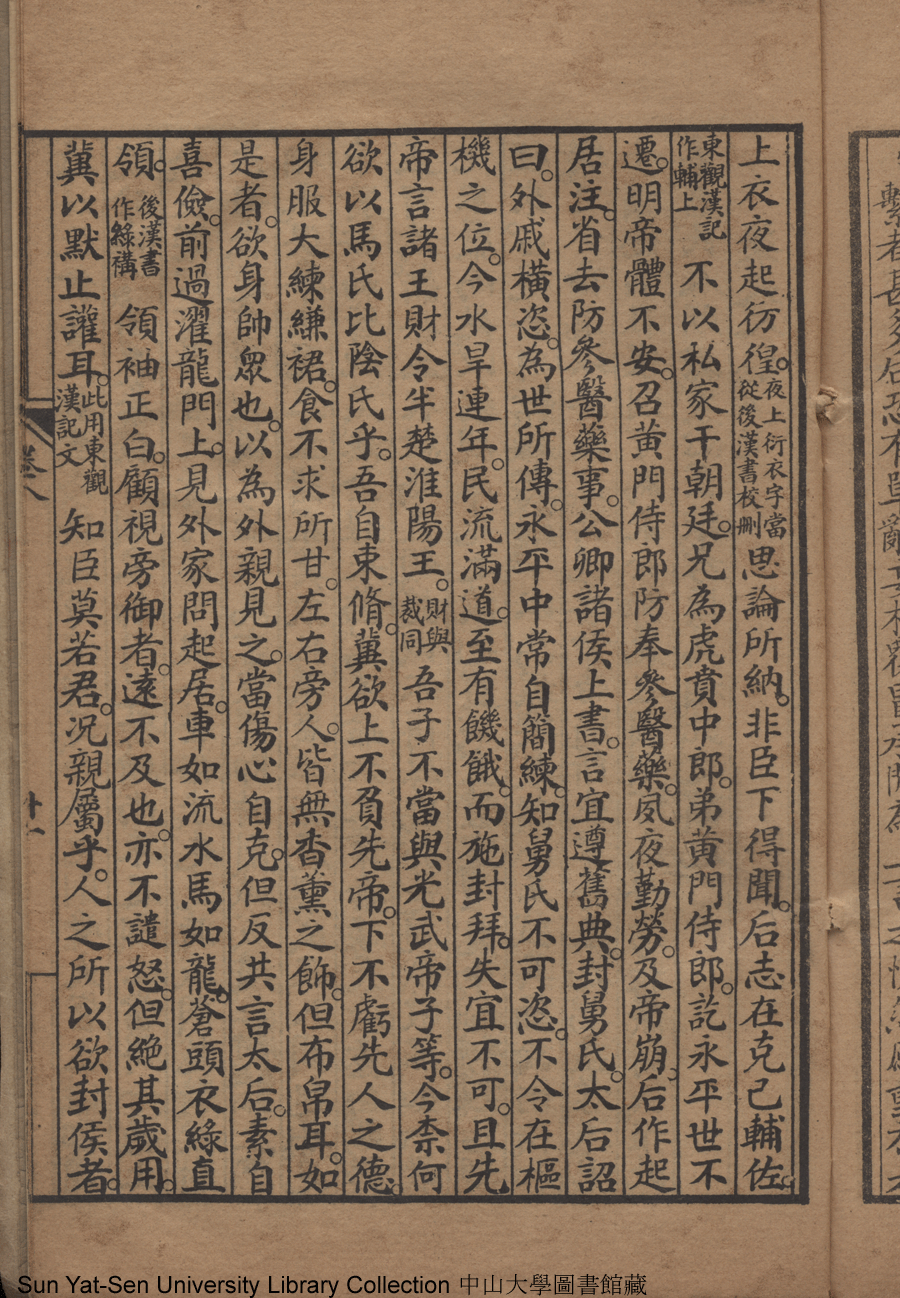 上衣夜起彷徨。夜上衍衣字當從後漢書校刪思論所納。非臣下得聞。后志在克己輔佐。
東觀漢記作輔上不以私家干朝廷。兄為虎賁中郎。弟黃門侍郎。訖永平世不
遷。明帝體不安。召黃門侍郎防奉參醫藥。夙夜勤勞。及帝崩。后作起
居注。省去防參醫藥事。公卿諸侯上書。言宜遵舊典。封舅氏。太后詔
曰。外戚橫恣。為世所傳。永平中常自簡練。知舅氏不可恣。不令在樞
機之位。今水旱連年。民流滿道。至有饑餓。而施封拜。失宜不可。且先
帝言諸王財令半楚淮陽王。財與裁同吾子不當與光武帝子等。今柰何
欲以馬氏比陰氏乎。吾自束脩。冀欲上不負先帝。下不虧先人之德。
身服大練縑裙。食不求所甘。左右旁人。皆無香薰之飾。但布帛耳。如
是者。欲身帥眾也。以為外親見之。當傷心自克。但反共言太后。素自
喜儉。前過濯龍門上。見外家問起居。車如流水馬如龍。蒼頭衣綠直
領。後漢書作綠褠領袖正白。顧視旁御者。遠不及也。亦不譴怒。但絕其歲用。
冀以默止讙耳。此用東觀漢記文知臣莫若君。況親屬乎。人之所以欲封侯者。
卷八
十一
Sun Yat-Sen University Library Collection 中山大學圖書館藏